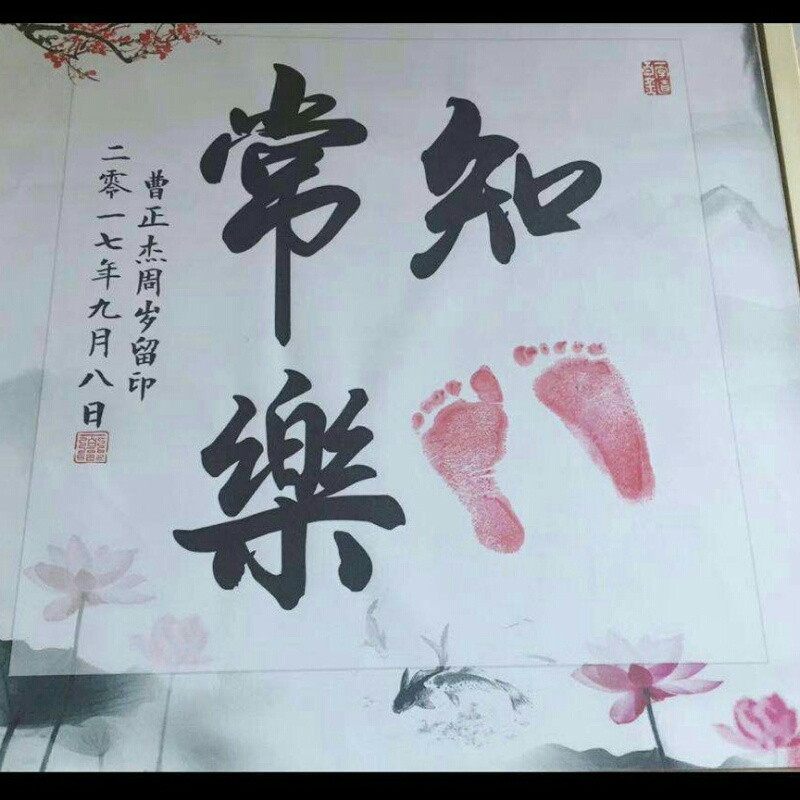 知
常樂
曹正杰周岁留印
二零一七年九月八日